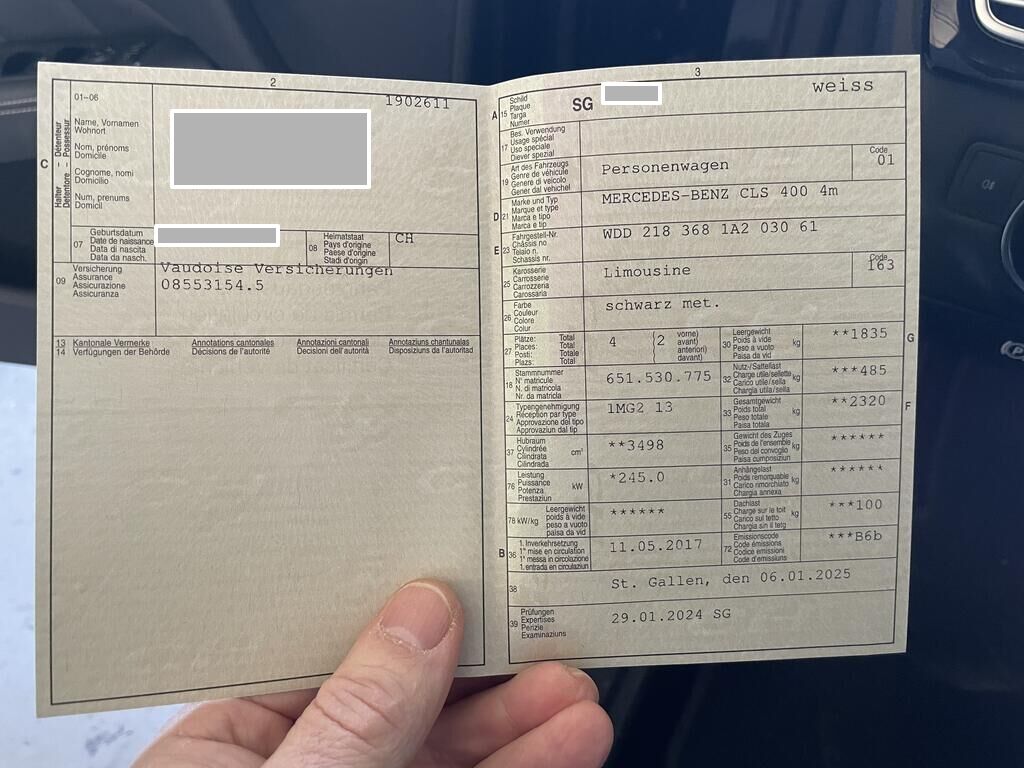 2
01–06
1902611
Halter – Détenteur
Detentore – Possessur
C
Name, Vornamen
Wohnort
Nom, prénoms
Domicile
Cognome, nomi
Domicilio
Num, prenums
Domicil
07
Geburtsdatum
Date de naissance
Data di nascita
Data da nasch.
08
Heimatstaat
Pays d'origine
Paese d'origine
Stadi d'origin
CH
09
Versicherung
Assurance
Assicurazione
Assicuranza
Vaudoise Versicherungen
08553154.5
13 Kantonale Vermerke
14 Verfügungen der Behörde
Annotations cantonales
Décisions de l'autorité
Annotazioni cantonali
Decisioni dell'autorità
Annotaziuns chantunalas
Disposiziuns da l'autoritad
3
A 15
Schild
Plaque
Targa
Numer
SG
weiss
17
Bes. Verwendung
Usage spécial
Uso speciale
Diever spezial
19
Art des Fahrzeugs
Genre de véhicule
Genere di veicolo
Gener dal vehichel
Personenwagen
Code
01
D 21
Marke und Typ
Marque et type
Marca e tipo
Marca e tip
MERCEDES-BENZ CLS 400 4m
E 23
Fahrgestell-Nr.
Châssis no
Telaio n.
Schassis nr.
WDD 218 368 1A2 030 61
25
Karosserie
Carrosserie
Carrozzeria
Carossaria
Limousine
Code
163
26
Farbe
Couleur
Colore
Colur
schwarz met.
27
Plätze: Total
Places: Total
Posti: Totale
Plazs: Total
4
(2
vorne)
avant)
anteriori)
davant)
30
Leergewicht
Poids à vide
Peso a vuoto
Paisa da vid
kg
**1835
G
18
Stammnummer
N° matricule
N. di matricola
Nr. da matricla
651.530.775
32
Nutz-/Sattellast
Charge utile/sellette
Carico utile/sella
Chargia utila/sella
kg
***485
24
Typengenehmigung
Réception par type
Approvazione del tipo
Approvaziun dal tip
1MG2 13
33
Gesamtgewicht
Poids total
Peso totale
Paisa totala
kg
**2320
F
37
Hubraum
Cylindrée
Cilindrata
Cilindrada
cm³
**3498
35
Gewicht des Zuges
Poids de l'ensemble
Peso del convoglio
Paisa cumposiziun
kg
******
76
Leistung
Puissance
Potenza
Prestaziun
kW
*245.0
31
Anhängelast
Poids remorquable
Carico rimorchiato
Chargia annexa
kg
******
78 kW/kg
Leergewicht
poids à vide
peso a vuoto
paisa da vid
******
55
Dachlast
Charge sur le toit
Carico sul tetto
Chargia sin il tetg
kg
***100
B 36
1. Inverkehrsetzung
1re mise en circulation
1a messa in circolazione
1. entrada en circulaziun
11.05.2017
72
Emissionscode
Code émissions
Codice emissioni
Code d'emissiuns
***B6b
38
St. Gallen, den 06.01.2025
39
Prüfungen
Expertises
Perizie
Examinaziuns
29.01.2024 SG